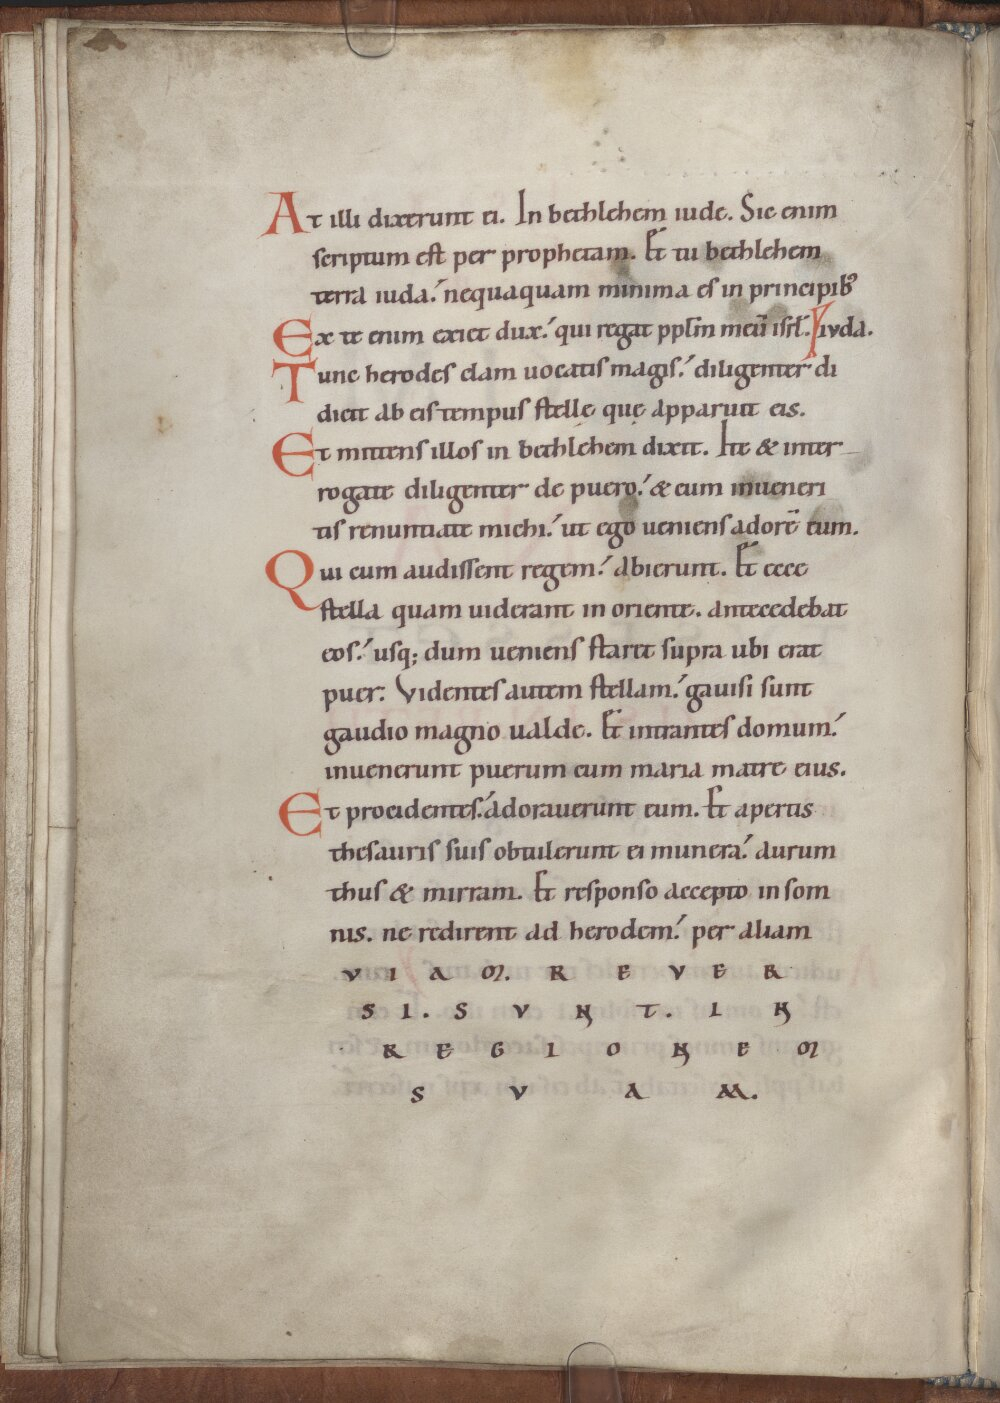 At illi dixerunt ei. In bethlehem iude. Sic enim
scriptum est per prophetam. Et tu bethlehem
terra iuda. nequaquam minima es in principib;
Ex te enim exiet dux. qui regat pplm meū isrl. iuda.
Tunc herodes clam uocatis magis. diligenter di
dicit ab eis tempus stelle que apparuit eis.
Et mittens illos in bethlehem dixit. Ite & inter
rogate diligenter de puero. & cum inueneri
tis renuntiate michi. ut ego ueniens adorē eum.
Qui cum audissent regem. abierunt. Et ecce
stella quam uiderant in oriente. antecedebat
eos. usq; dum ueniens staret supra ubi erat
puer. Videntes autem stellam. gauisi sunt
gaudio magno ualde. Et intrantes domum.
inuenerunt puerum cum maria matre eius.
Et procidentes. adorauerunt eum. Et apertis
thesauris suis obtulerunt ei munera. aurum
thus & mirram. Et responso accepto in som
nis. ne redirent ad herodem. per aliam
VIAM. REVER
SI. SVNT. IN
REGIONEM
SVAM.